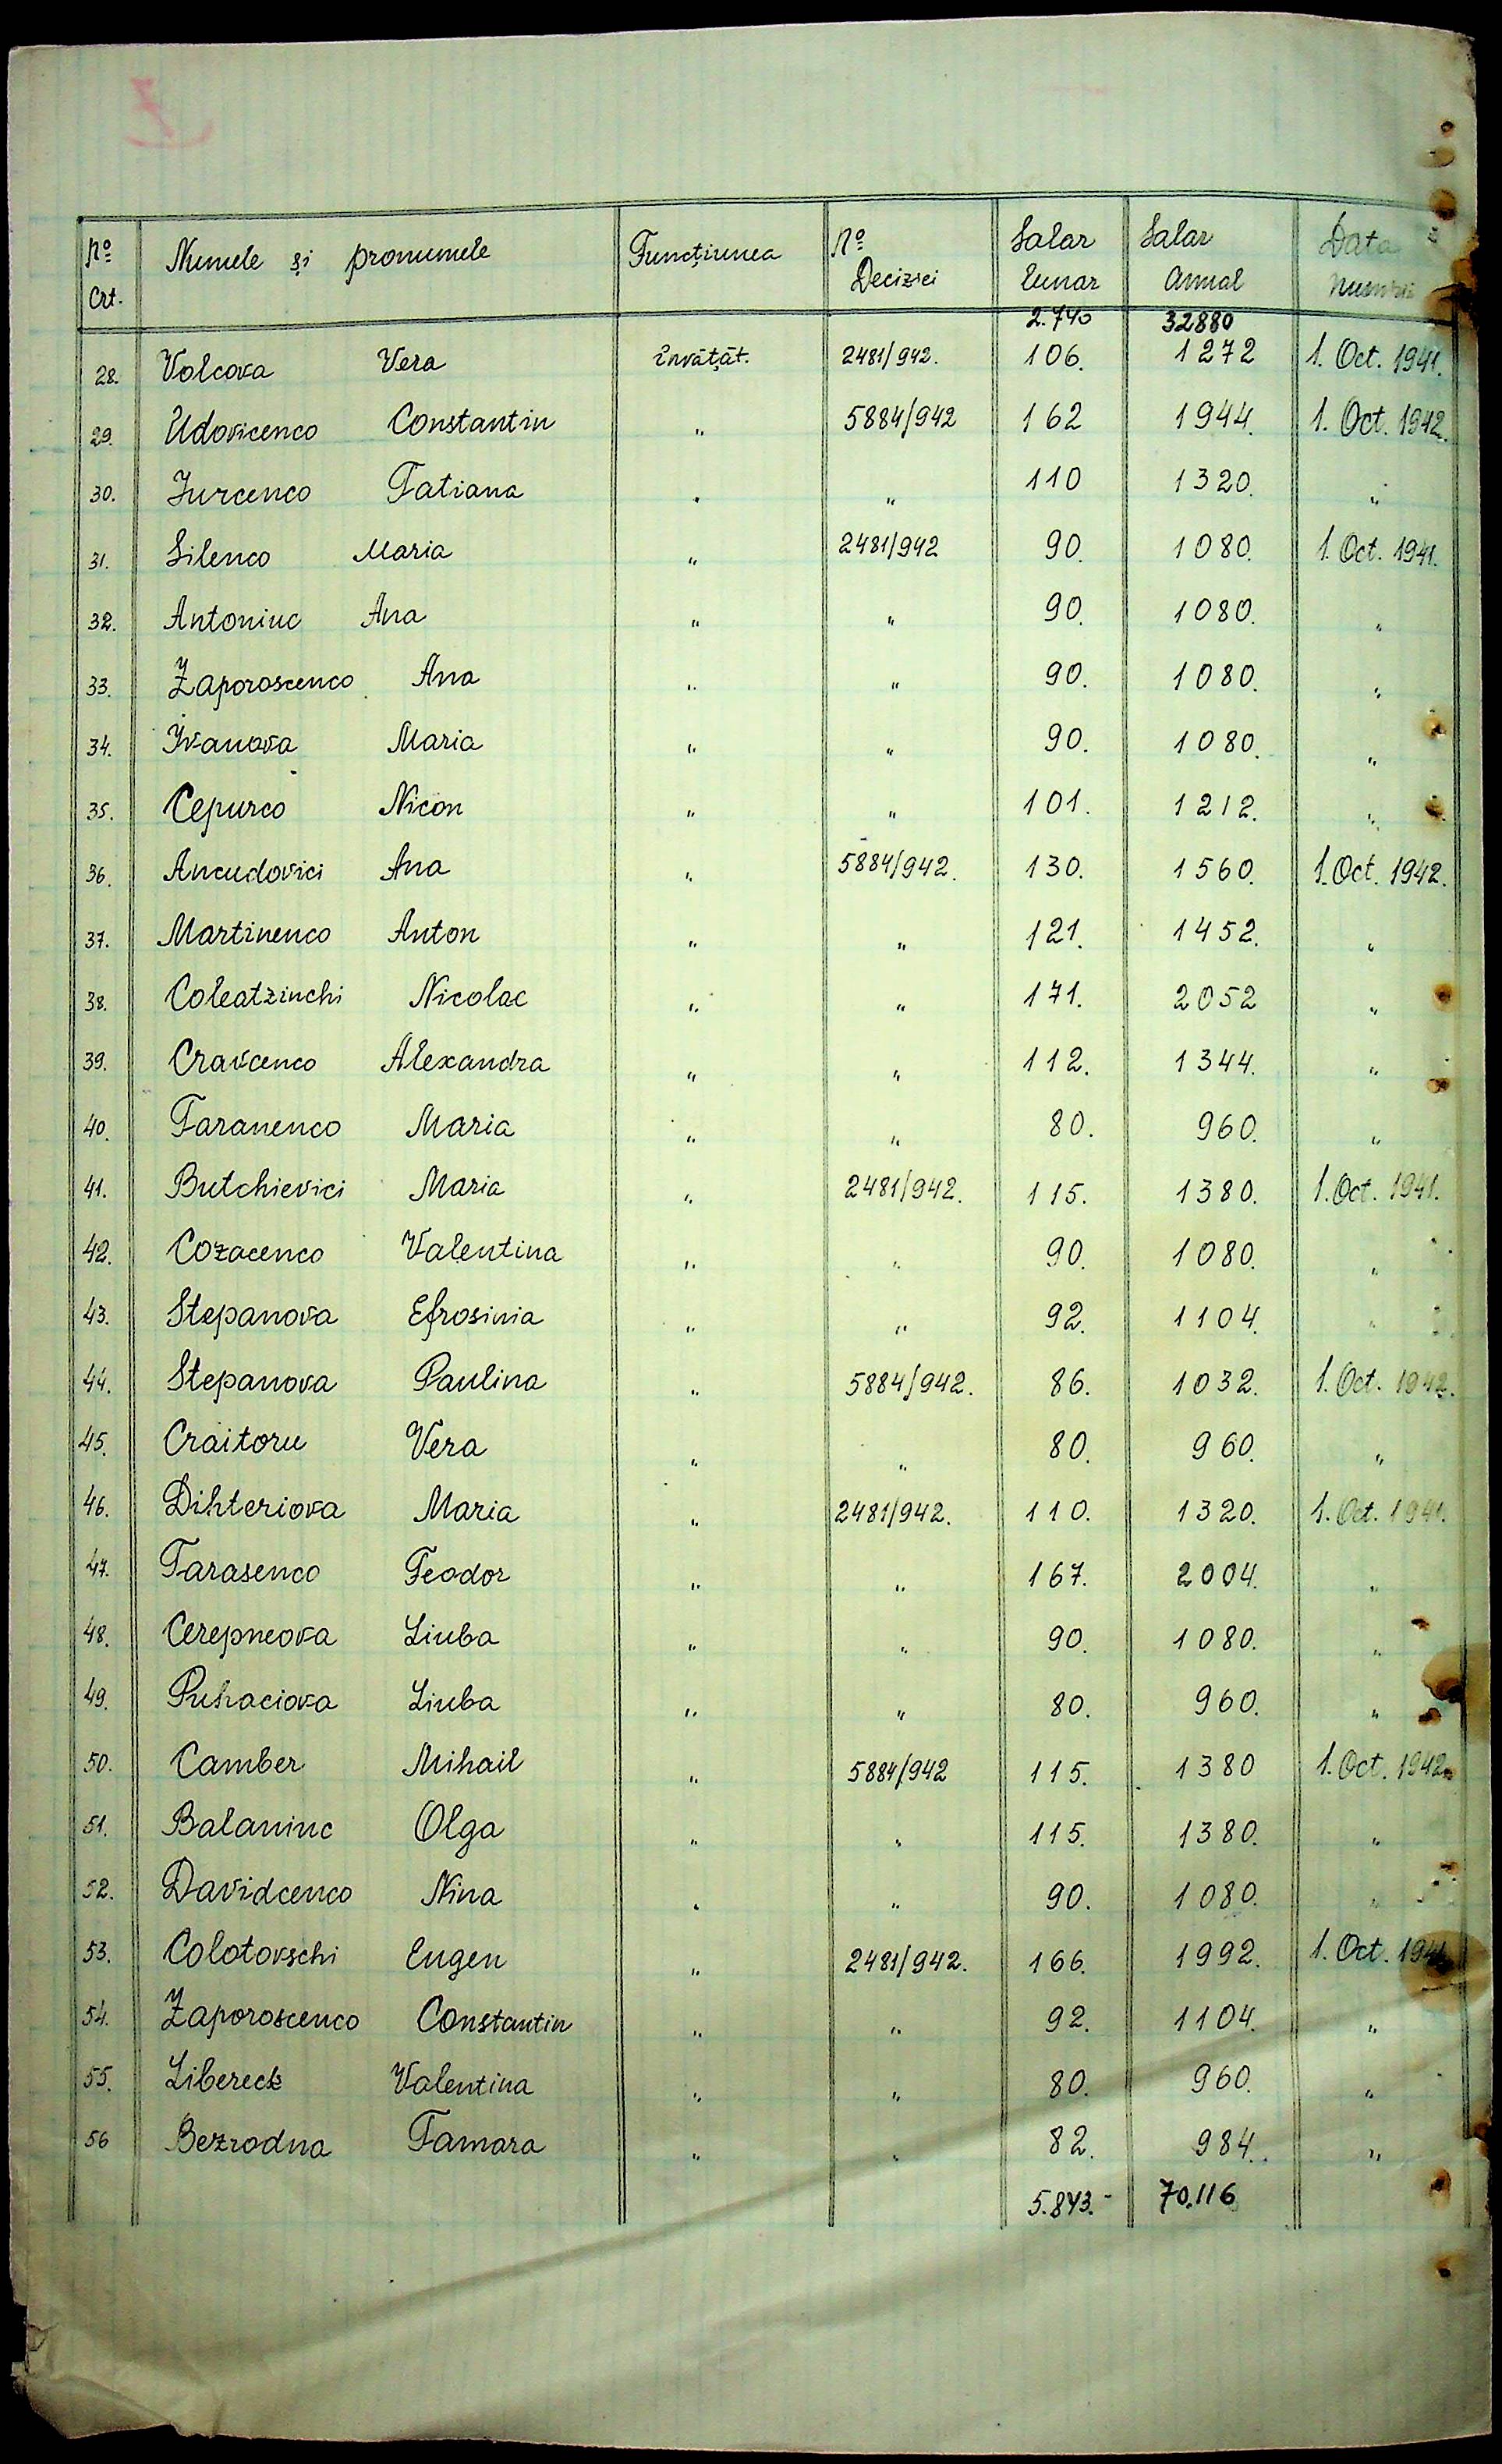 Nº Crt. Numele și pronumele Funcțiunea Nº Deciziei Salar Lunar Salar Anual Data
2.740 32880
28. Volcova Vera învățăt. 2481/942. 106. 1272 1. Oct. 1941.
29. Udovicenco Constantin " 5884/942 162 1944. 1. Oct. 1942.
30. Jurcenco Tatiana " " 110 1320. "
31. Silenco Maria " 2481/942 90. 1080. 1. Oct. 1941.
32. Antoniuc Ana " " 90. 1080. "
33. Zaporoscenco Ana " " 90. 1080. "
34. Ivanova Maria " " 90. 1080. "
35. Cepurco Nicon " " 101. 1212. "
36. Ancudovici Ana " 5884/942. 130. 1560. 1. Oct. 1942.
37. Martinenco Anton " " 121. 1452. "
38. Coleatzinchi Nicolae " " 171. 2052 "
39. Cravcenco Alexandra " " 112. 1344. "
40. Taranenco Maria " " 80. 960. "
41. Butchievici Maria " 2481/942. 115. 1380. 1. Oct. 1941.
42. Cozacenco Valentina " " 90. 1080. "
43. Stepanova Efrosinia " " 92. 1104. "
44. Stepanova Paulina " 5884/942. 86. 1032. 1. Oct. 1942.
45. Craitoru Vera " " 80. 960. "
46. Dihteriova Maria " 2481/942. 110. 1320. 1. Oct. 1941.
47. Tarasenco Feodor " " 167. 2004. "
48. Cerepneova Liuba " " 90. 1080. "
49. Puhaciova Liuba " " 80. 960. "
50. Camber Mihail " 5884/942 115. 1380 1. Oct. 1942.
51. Balaniuc Olga " " 115. 1380. "
52. Davidcenco Nina " " 90. 1080. "
53. Colotovschi Eugen " 2481/942. 166. 1992. 1. Oct. 1941
54. Zaporoscenco Constantin " " 92. 1104. "
55. Libereck Valentina " " 80. 960. "
56 Bezrodna Tamara " " 82. 984. "
5.843.- 70.116